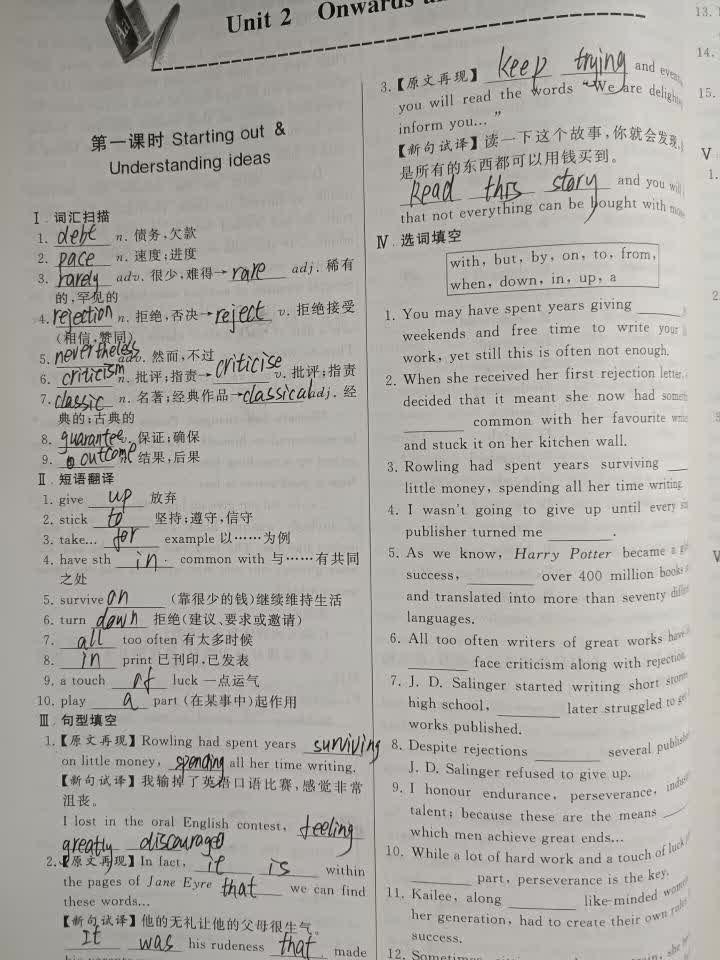 Unit 2 Onwards
第一课时 Starting out &
Understanding ideas
Ⅰ. 词汇扫描
1. debt n. 债务,欠款
2. pace n. 速度;进度
3. rarely adv. 很少,难得→rare adj. 稀有
的,罕见的
4. rejection n. 拒绝,否决→reject v. 拒绝接受
(相信,赞同)
5. nevertheless adv. 然而,不过
6. criticism n. 批评;指责→criticise v. 批评;指责
7. classic n. 名著;经典作品→classical adj. 经
典的;古典的
8. guarantee v. 保证;确保
9. outcome n. 结果,后果
Ⅱ. 短语翻译
1. give up 放弃
2. stick to 坚持;遵守,信守
3. take... for example 以……为例
4. have sth in common with 与……有共同
之处
5. survive on (靠很少的钱)继续维持生活
6. turn down 拒绝(建议、要求或邀请)
7. all too often 有太多时候
8. in print 已刊印,已发表
9. a touch of luck 一点运气
10. play a part (在某事中)起作用
Ⅲ. 句型填空
1.【原文再现】Rowling had spent years surviving
on little money, spending all her time writing.
【新句试译】我输掉了英语口语比赛,感觉非常
沮丧。
I lost in the oral English contest, feeling
greatly discouraged
2.【原文再现】In fact, it is within
the pages of Jane Eyre that we can find
these words...
【新句试译】他的无礼让他的父母很生气。
It was his rudeness that made
3.【原文再现】 keep trying and
you will read the words "We are
inform you..."
【新句试译】读一下这个故事,你就会发现,
是所有的东西都可以用钱买到。
Read this story and you
that not everything can be bought with
Ⅳ. 选词填空
with, but, by, on, to, from,
when, down, in, up, a
1. You may have spent years giving ____
weekends and free time to write your
work, yet still this is often not enough.
2. When she received her first rejection letter,
decided that it meant she now had
________ common with her favourite
and stuck it on her kitchen wall.
3. Rowling had spent years surviving ____
little money, spending all her time writing.
4. I wasn't going to give up until every
publisher turned me ________.
5. As we know, Harry Potter became a
success, ________ over 400 million books
and translated into more than seventy
languages.
6. All too often writers of great works have
________ face criticism along with rejection.
7. J. D. Salinger started writing short
high school, ________ later struggled to
works published.
8. Despite rejections ________ several
J. D. Salinger refused to give up.
9. I honour endurance, perseverance,
talent; because these are the means ____
which men achieve great ends...
10. While a lot of hard work and a touch of luck
________ part, perseverance is the key.
11. Kailee, along ________ like-minded
her generation, had to create their own
success.
12. Sometimes
13.
14.
15.
Ⅴ
1.